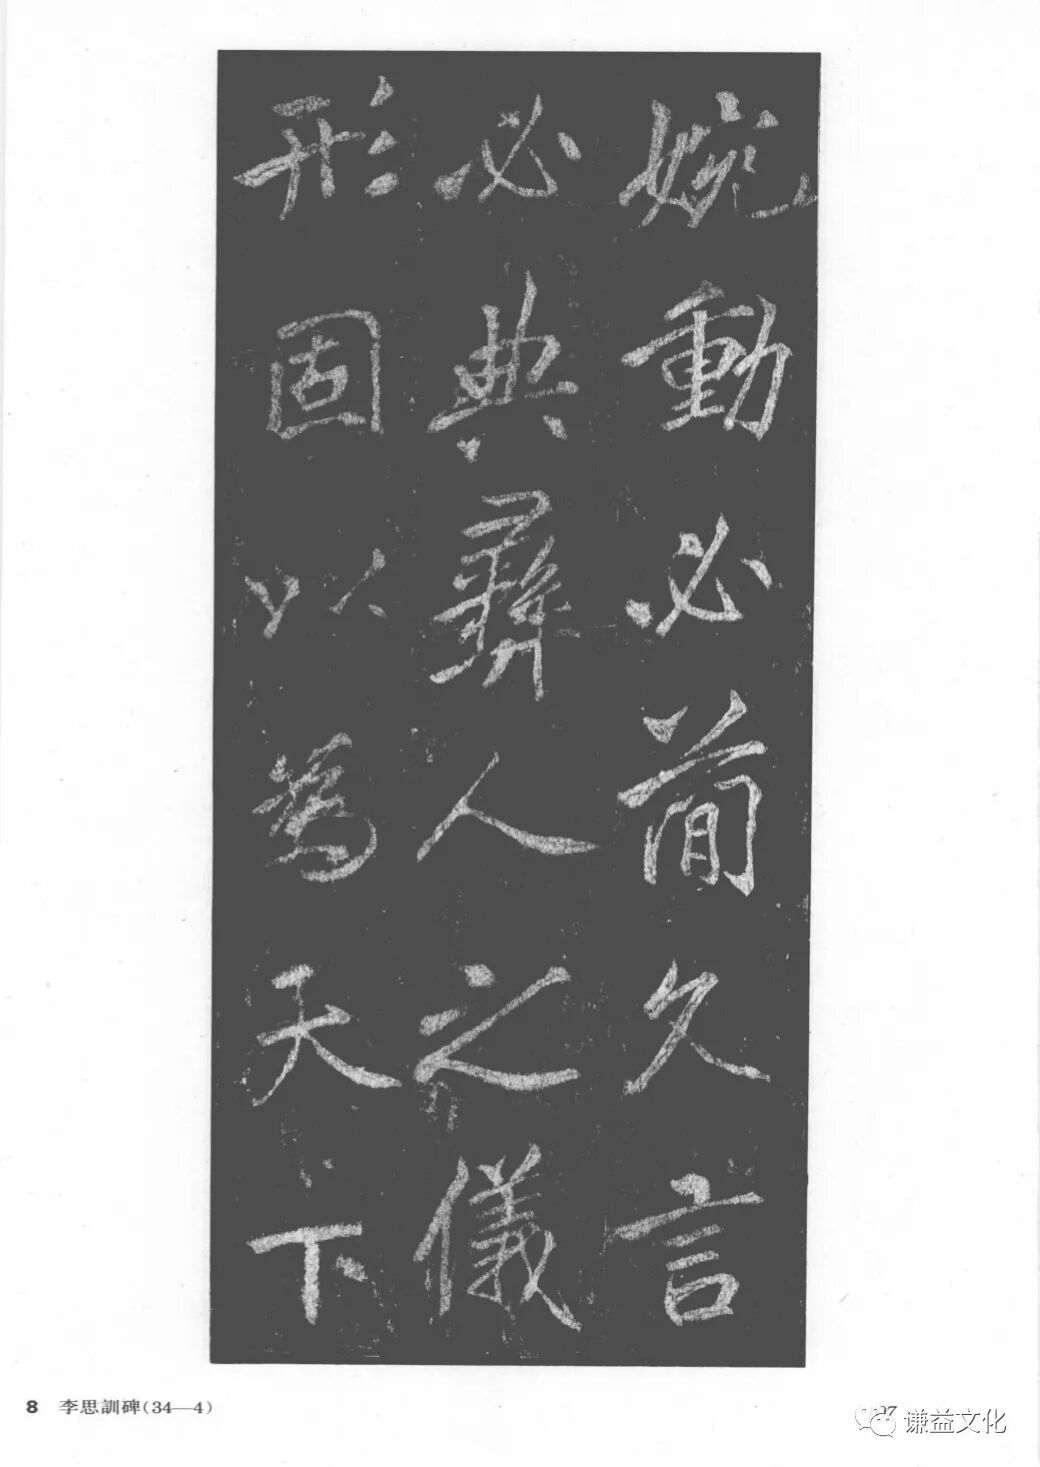 婉動必簡久言
必典彞人之儀
形固以為天下
8 李思訓碑(34—4)
97
谦益文化